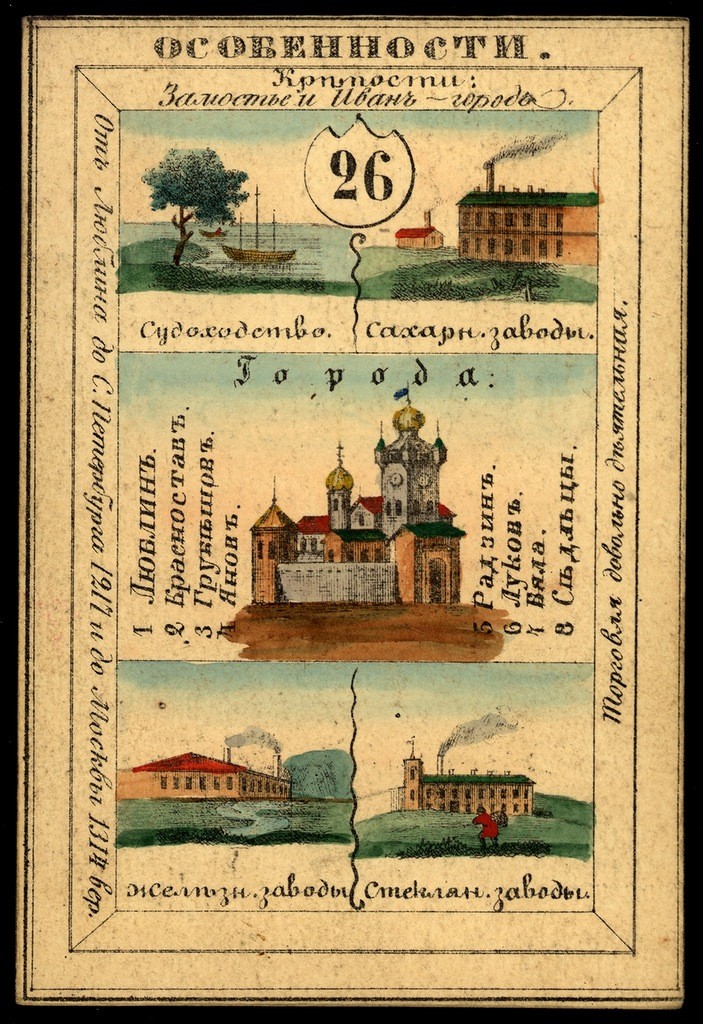 ОСОБЕННОСТИ.
Крѣпости:
Замостье и Иванъ-городъ.
26
Судоходство.
Сахарн. заводы.
Города:
1 Люблинъ.
2 Красноставъ.
3 Грубѣшовъ.
4 Яновъ.
5 Радзинъ.
6 Луковъ.
7 Бяла.
8 Сѣдльцы.
Желѣзн. заводы.
Стеклян. заводы.
Отъ Люблина до С. Петербурга 1217 и до Москвы 1314 вер.
Торговля довольно дѣятельная.